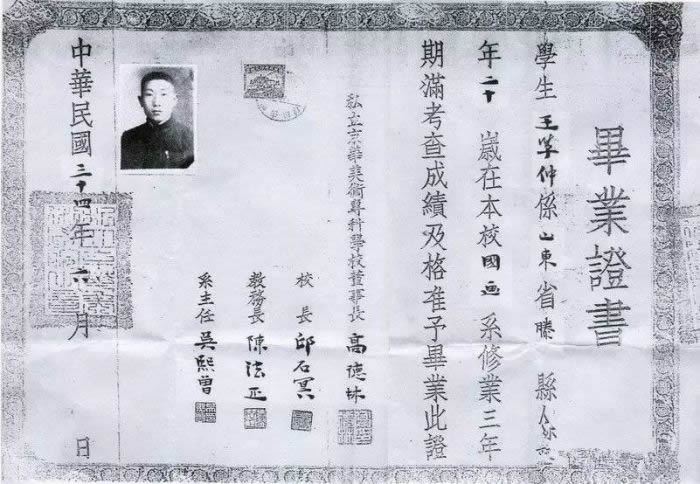 畢業證書
學生王學仲係山東省滕縣人
年二十歲在本校國画系修業三年
期滿考查成績及格准予畢業此證
私立京華美術專科學校董事長 高德林
校長 邱石冥
教務長 陳法正
系主任 吳熙曾
中華民國三十四年六月 日